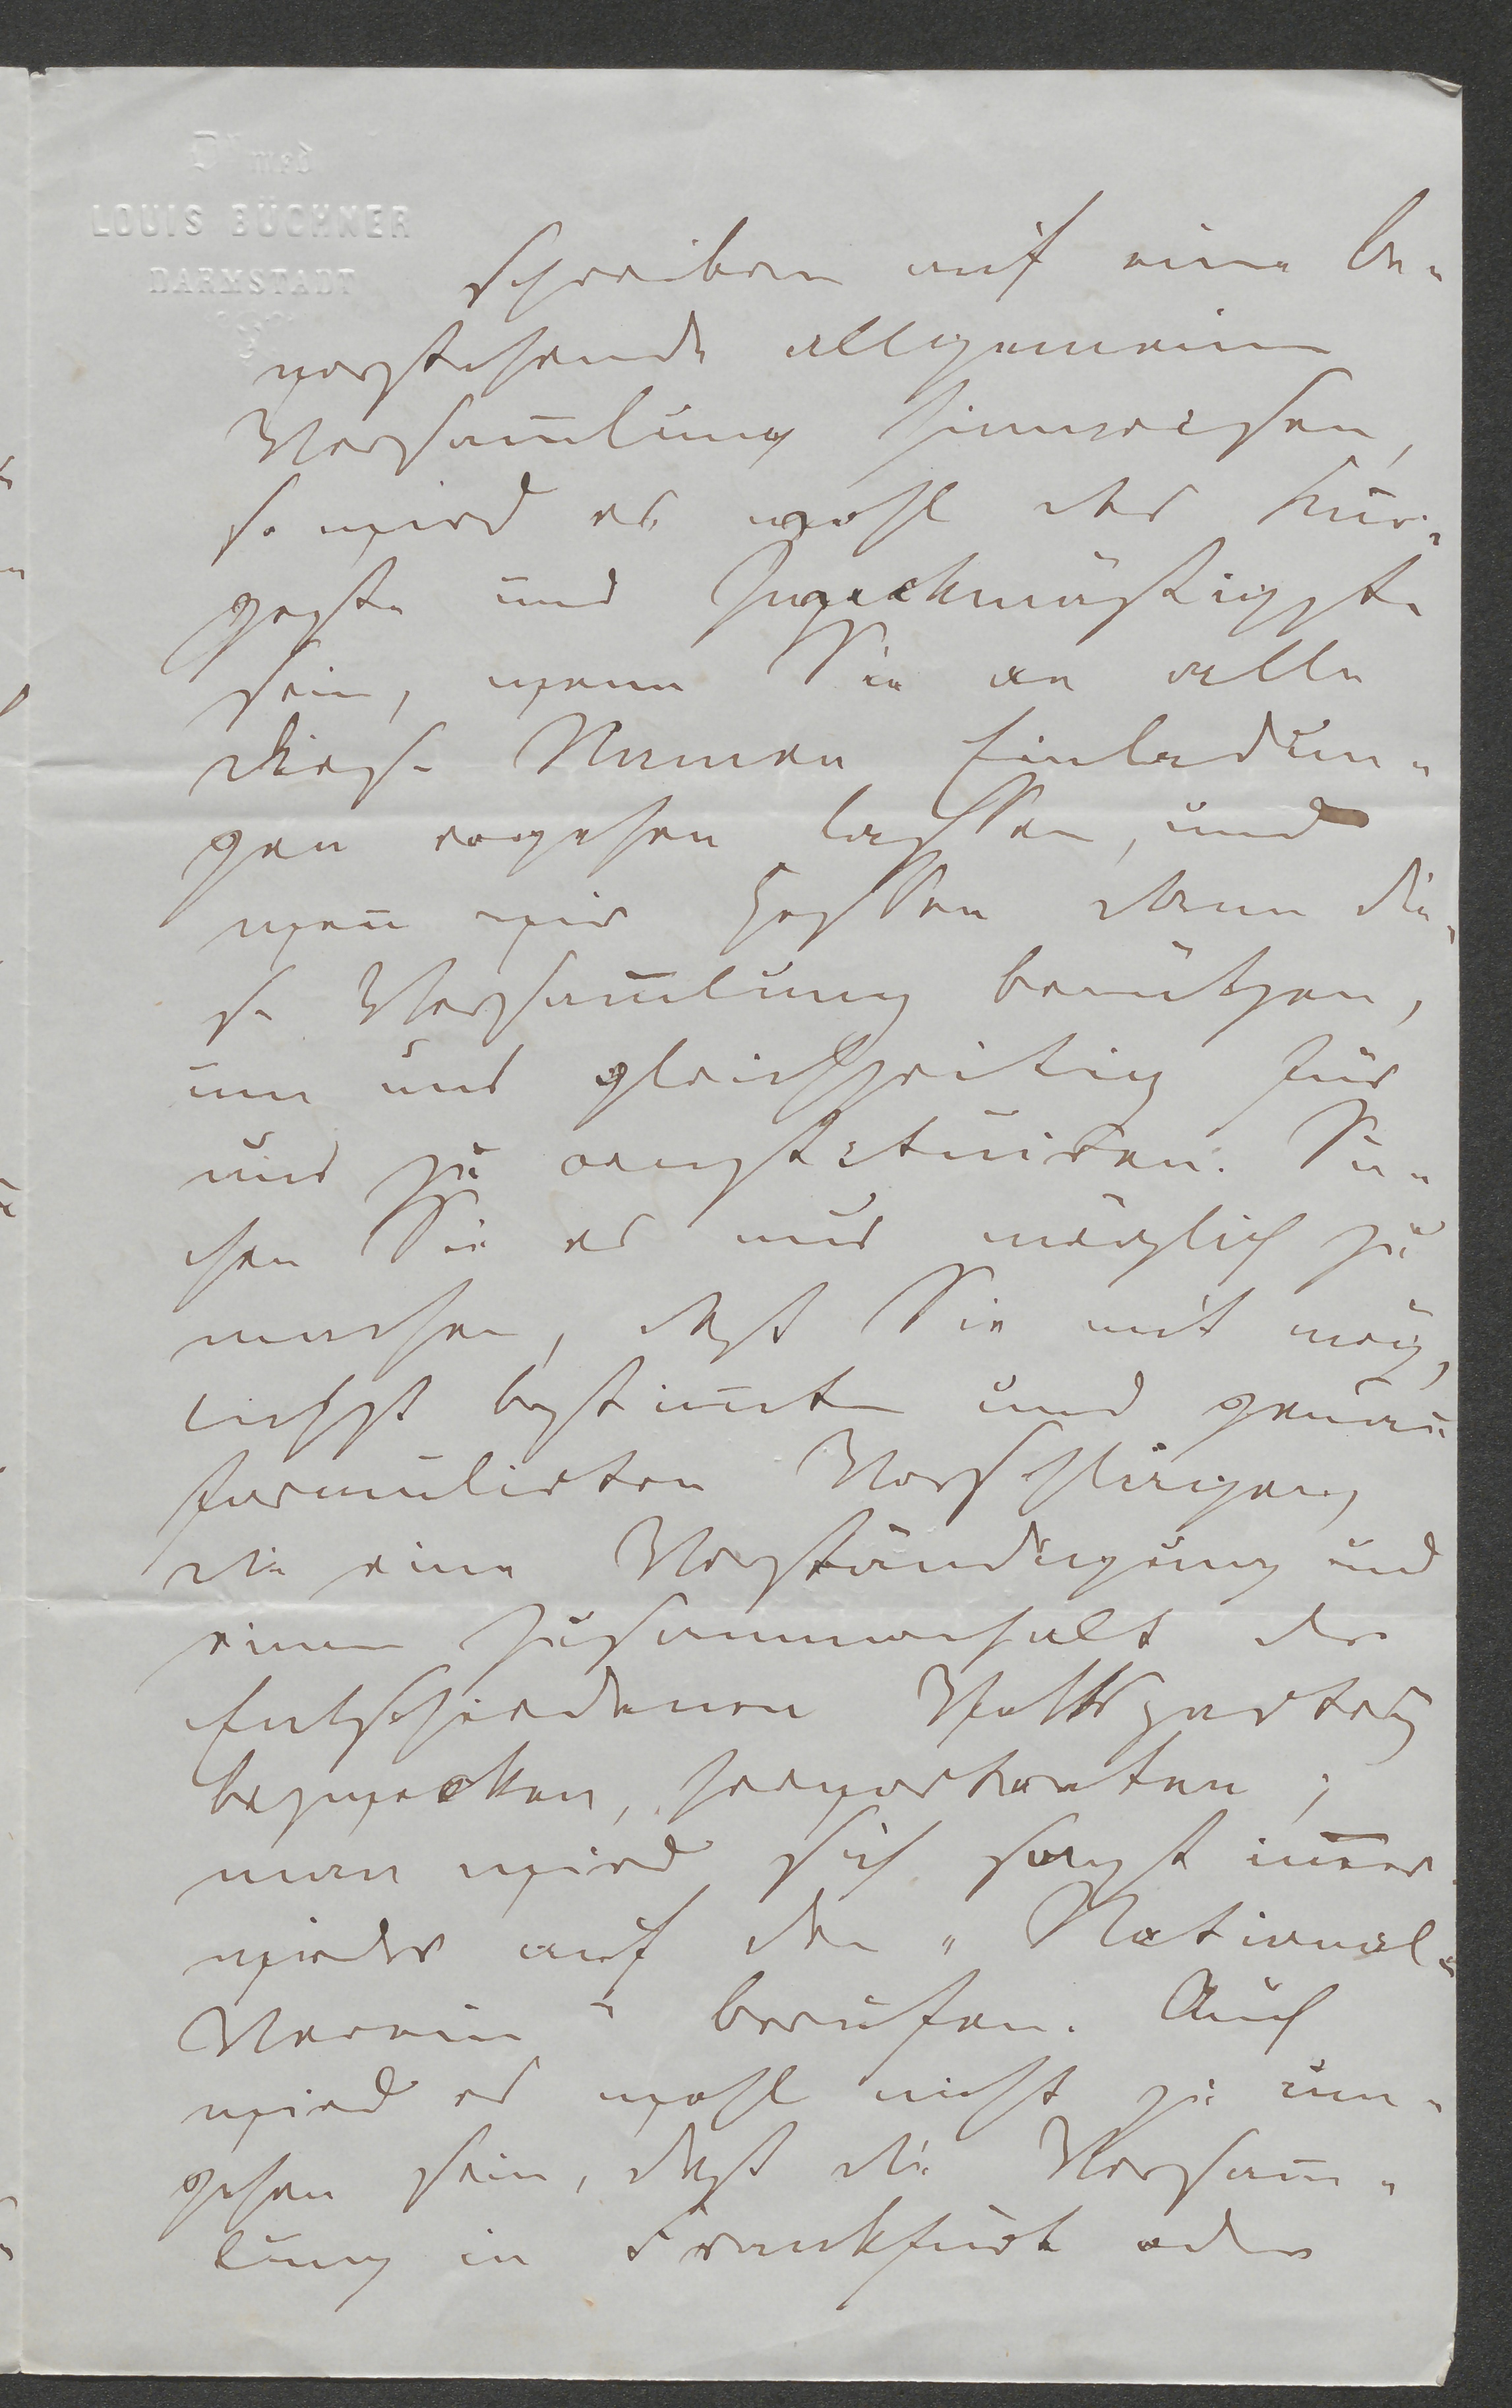 Dr med
LOUIS BÜCHNER
DARMSTADT
schreiben auf eine be-
vorstehende allgemeine
Versam̅lung hinweisen,
so wird es wohl das Kür-
zeste und Zweckmäßigste
sein, wenn Sie an alle
diese Namen Einladun-
gen ergehen lassen, und
wen̅ wir Hessen dann die-
se Versam̅lung benützen,
um uns gleichzeitig für
uns zu constituiren. Su-
chen Sie es nur möglich zu
machen, daß Sie mit mög-
lichst bestim̅ten und genau
formulirten Vorschlägen,
die eine Verständigung und
einen Zusammenhalt der
Entschiedenen Volkspartei
bezwecken, hervortreten;
man wird sich sonst im̅er
wieder auf den „National-
Verein" berufen. Auch
wird es wohl nicht zu um-
gehen sein, daß die Versam̅-
lung in Frankfurt oder